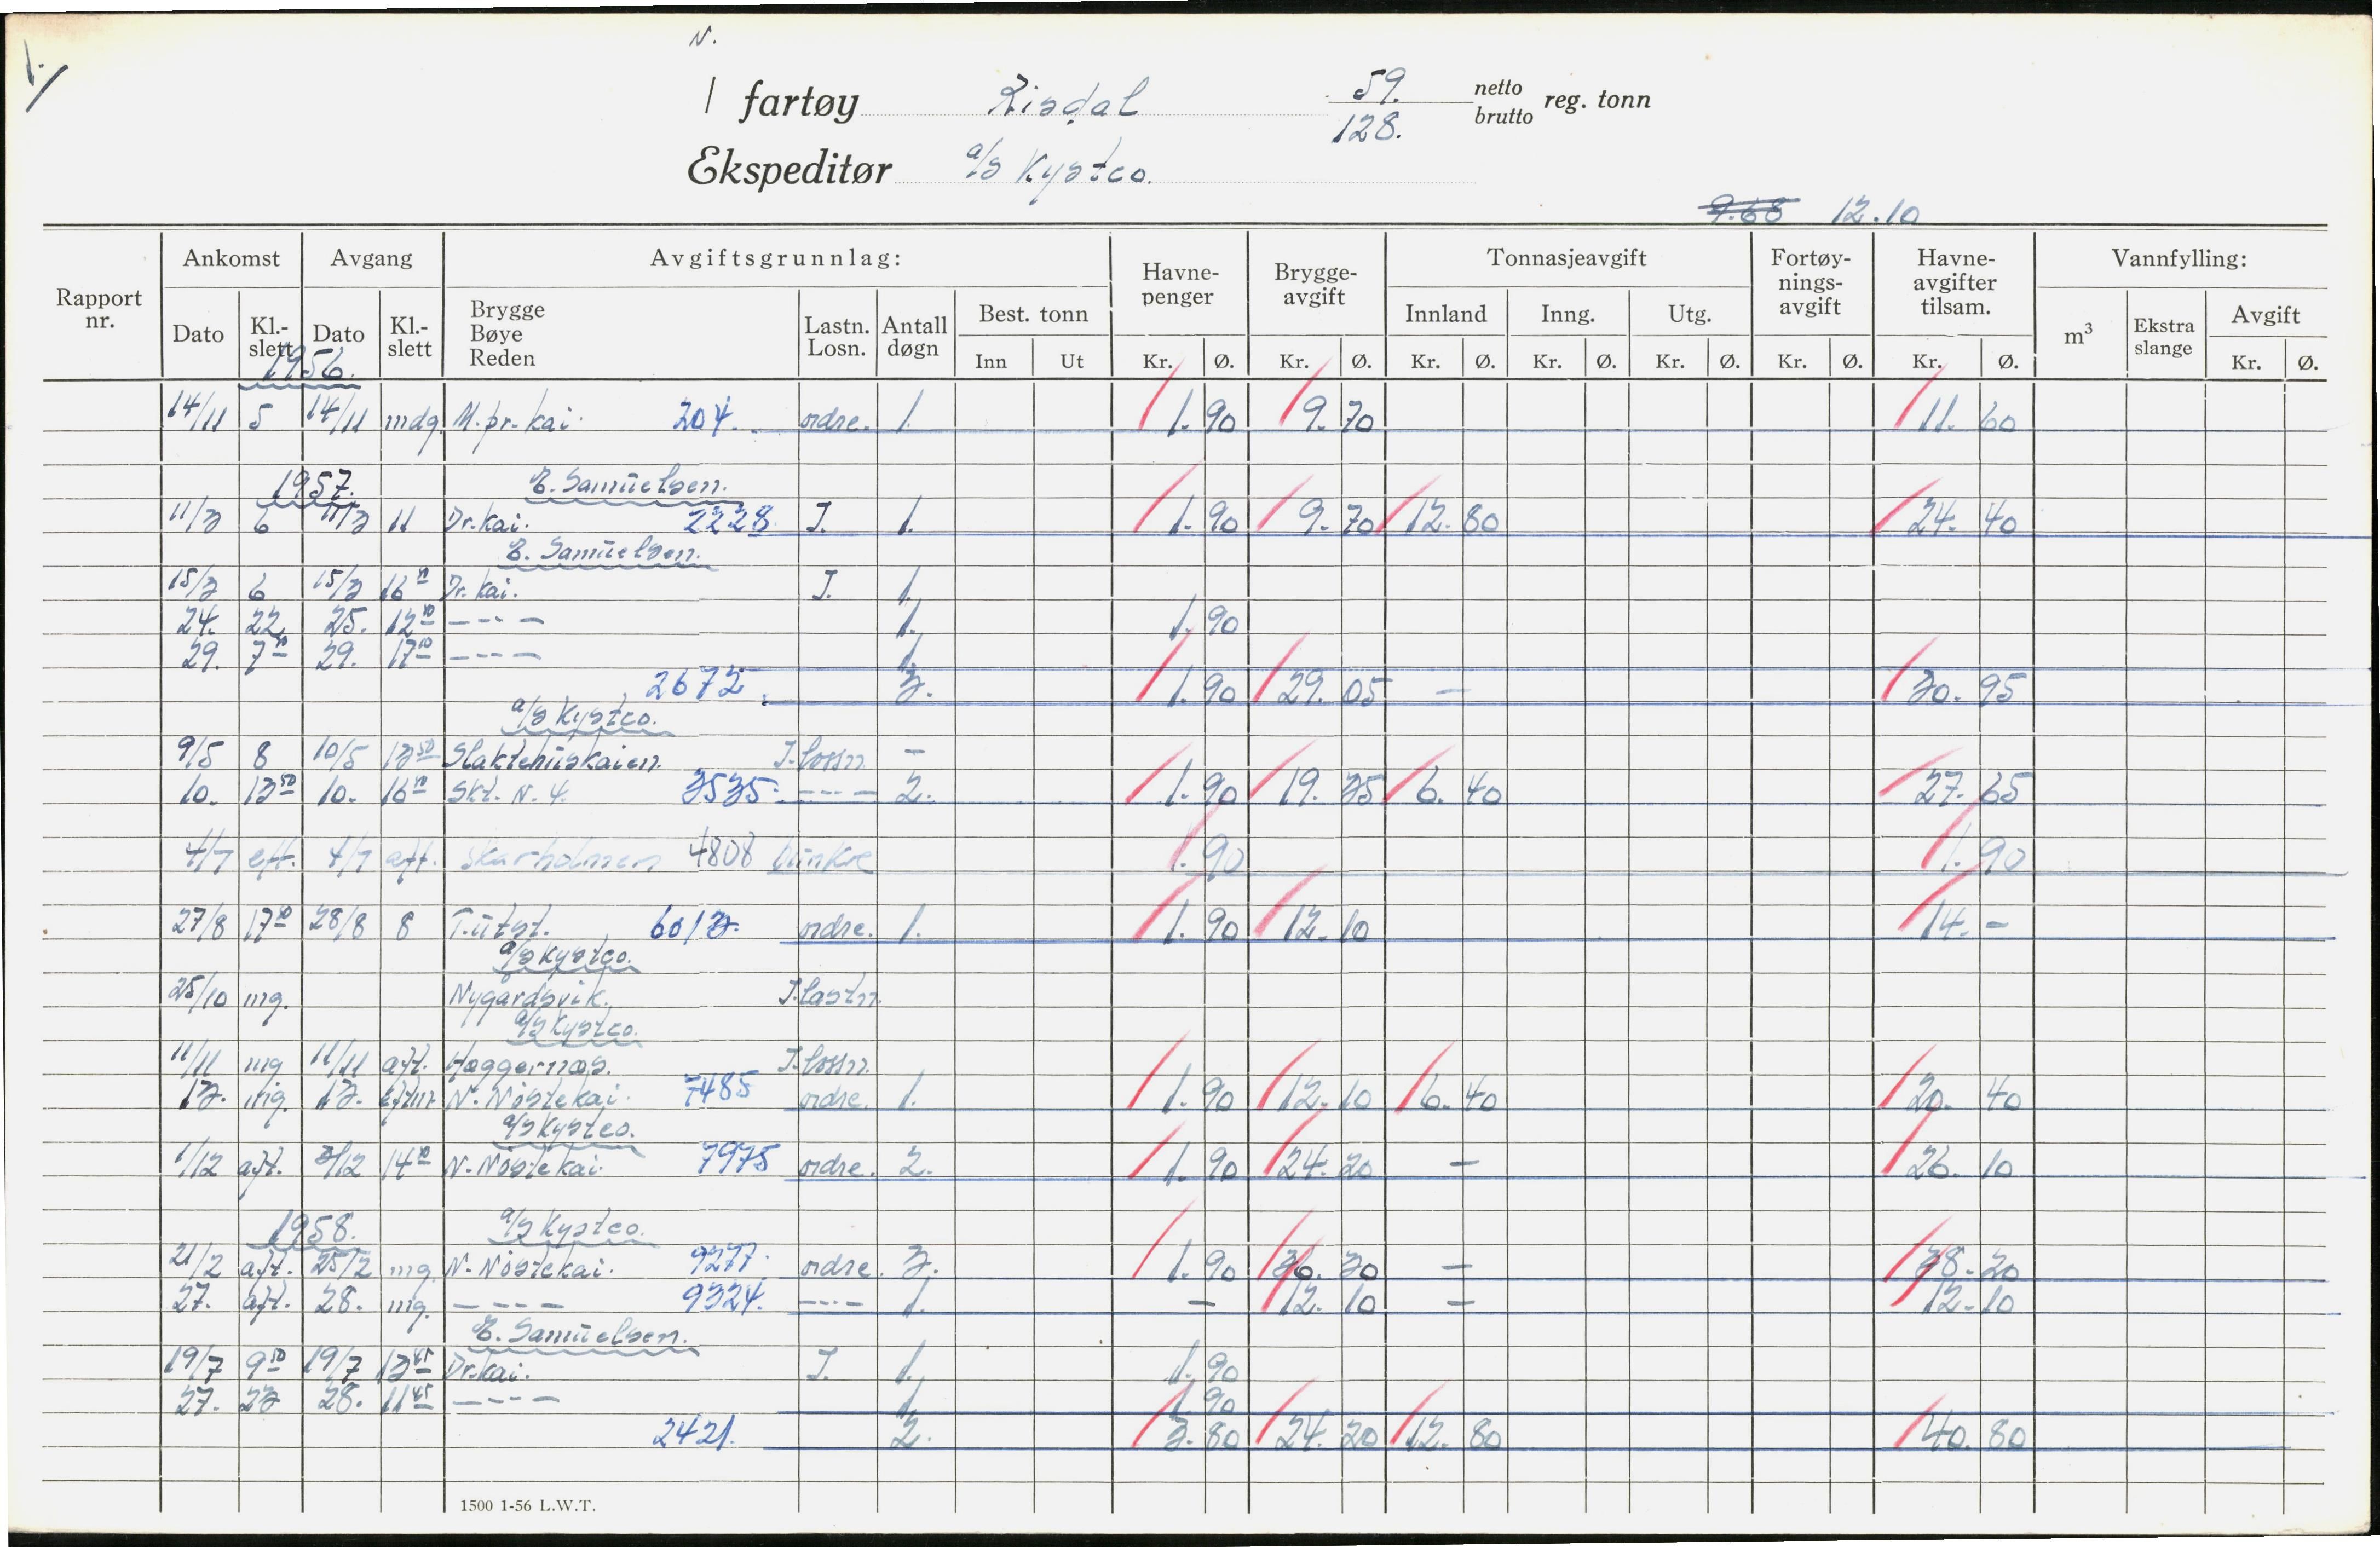 N.
1.
/ fartøy Risdal 59. netto
128. brutto reg. tonn
Ekspeditør a/s Kystco.
9.68 12.10
Rapport nr. Ankomst Avgang Avgiftsgrunnlag: Havne-penger Brygge-avgift Tonnasjeavgift Fortøy-nings-avgift Havne-avgifter tilsam. Vannfylling:
Dato Kl.-slett Dato Kl.-slett Brygge Bøye Reden Lastn. Losn. Antall døgn Best. tonn Innland Inng. Utg. m³ Ekstra slange Avgift
Inn Ut Kr. Ø. Kr. Ø. Kr. Ø. Kr. Ø. Kr. Ø. Kr. Ø. Kr. Ø. Kr. Ø.
1956.
14/11 5 14/11 mdg. M.pr. kai. 204. ordre. 1. 1. 90 9. 70 11. 60
1957. E. Samuelsen.
11/3 6 11/3 11 Dr. kai. 2228 I. 1. 1. 90 9. 70 12. 80 24. 40
E. Samuelsen.
15/3 6 15/3 16 Dr. kai. I. 1.
24. 22 25. 12 ---- 1. 1. 90
29. 7 29. 17 ---- 1.
2672 3. 1. 90 29. 05 – 30. 95
a/s Kystco.
9/5 8 10/5 13 50 Slaktehuskaien. I. lossn. –
10. 13 50 10. 16 Skt. N. 4. 3535. ---- 2. 1. 90 19. 35 6. 40 27. 65
4/7 eft. 4/7 aft. Skarholmen 4808 bunkre 1. 90 1. 90
27/8 17 28/8 8 T. utst. 6013. ordre. 1. 1. 90 12. 10 14. –
a/s Kystco.
25/10 mg. Nygårdsvik. I. lastn.
a/s Kystco.
11/11 mg 11/11 aft. Haggernæs. I. lossn.
13. mg. 13. N. Nøstekai. 7485 ordre. 1. 1. 90 12. 10 6. 40 20. 40
a/s Kystco.
1/12 aft. 3/12 14 N. Nøstekai. 7975 ordre. 2. 1. 90 24. 20 – 26. 10
1958. a/s Kystco.
21/2 aft. 25/2 mg. N. Nøstekai. 9277. ordre. 3. 1. 90 36. 30 – 38. 20
27. aft. 28. mg. ---- 9324. ---- 1. – 12. 10 – 12. 10
E. Samuelsen.
19/7 9 50 19/7 13 45 Dr. kai. I. 1. 1. 90
27. 23 28. 11 45 ---- 1. 1. 90
2421. 2. 3. 80 24. 20 12. 80 40. 80
1500 1-56 L.W.T.